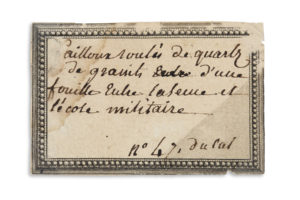 Cailloux roulés de quartz
de granit d'une
fouille Entre la Seine et
l'école militaire
n° 47. du Cat